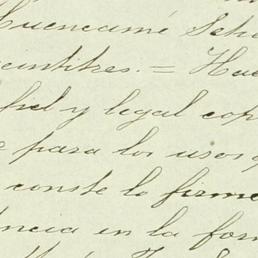 Cuencamé Set
veintitres. = Hue
fiel y legal cop
para los usos q
conste lo firmo
ncia en la for